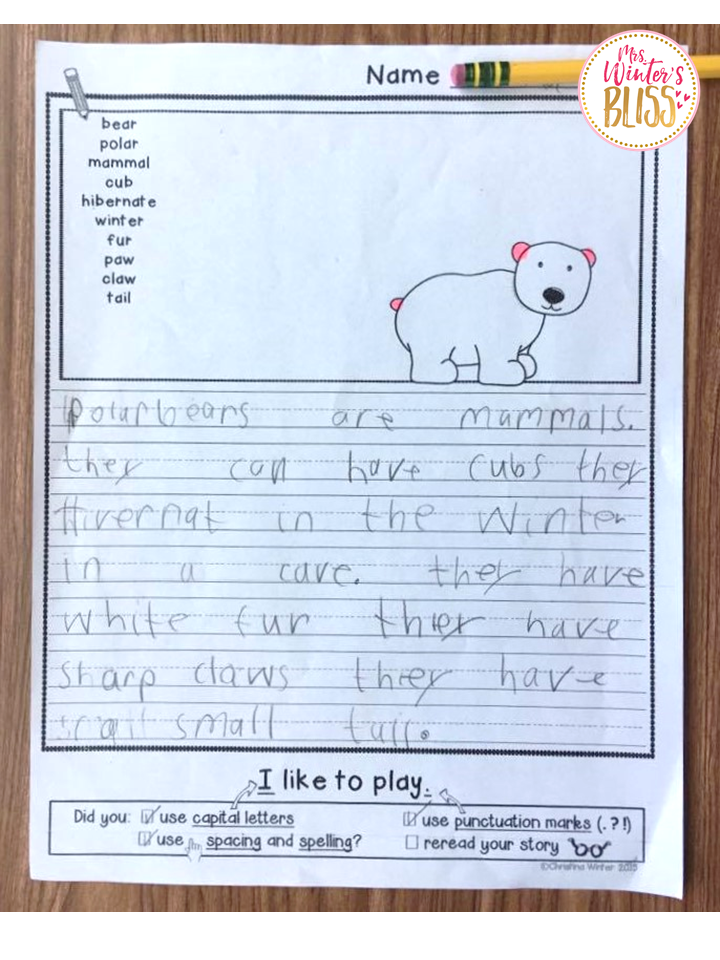 Name
Mrs.
Winter's
BLISS
bear
polar
mammal
cub
hibernate
winter
fur
paw
claw
tail
Polarbears are mammals.
they can have cubs they
Hivernat in the Winter
in a cave. they have
white fur thier have
sharp claws thiey have
small tail.
I like to play.
Did you: use capital letters use punctuation marks (. ? !)
use spacing and spelling? reread your story
©Christina Winter 2015